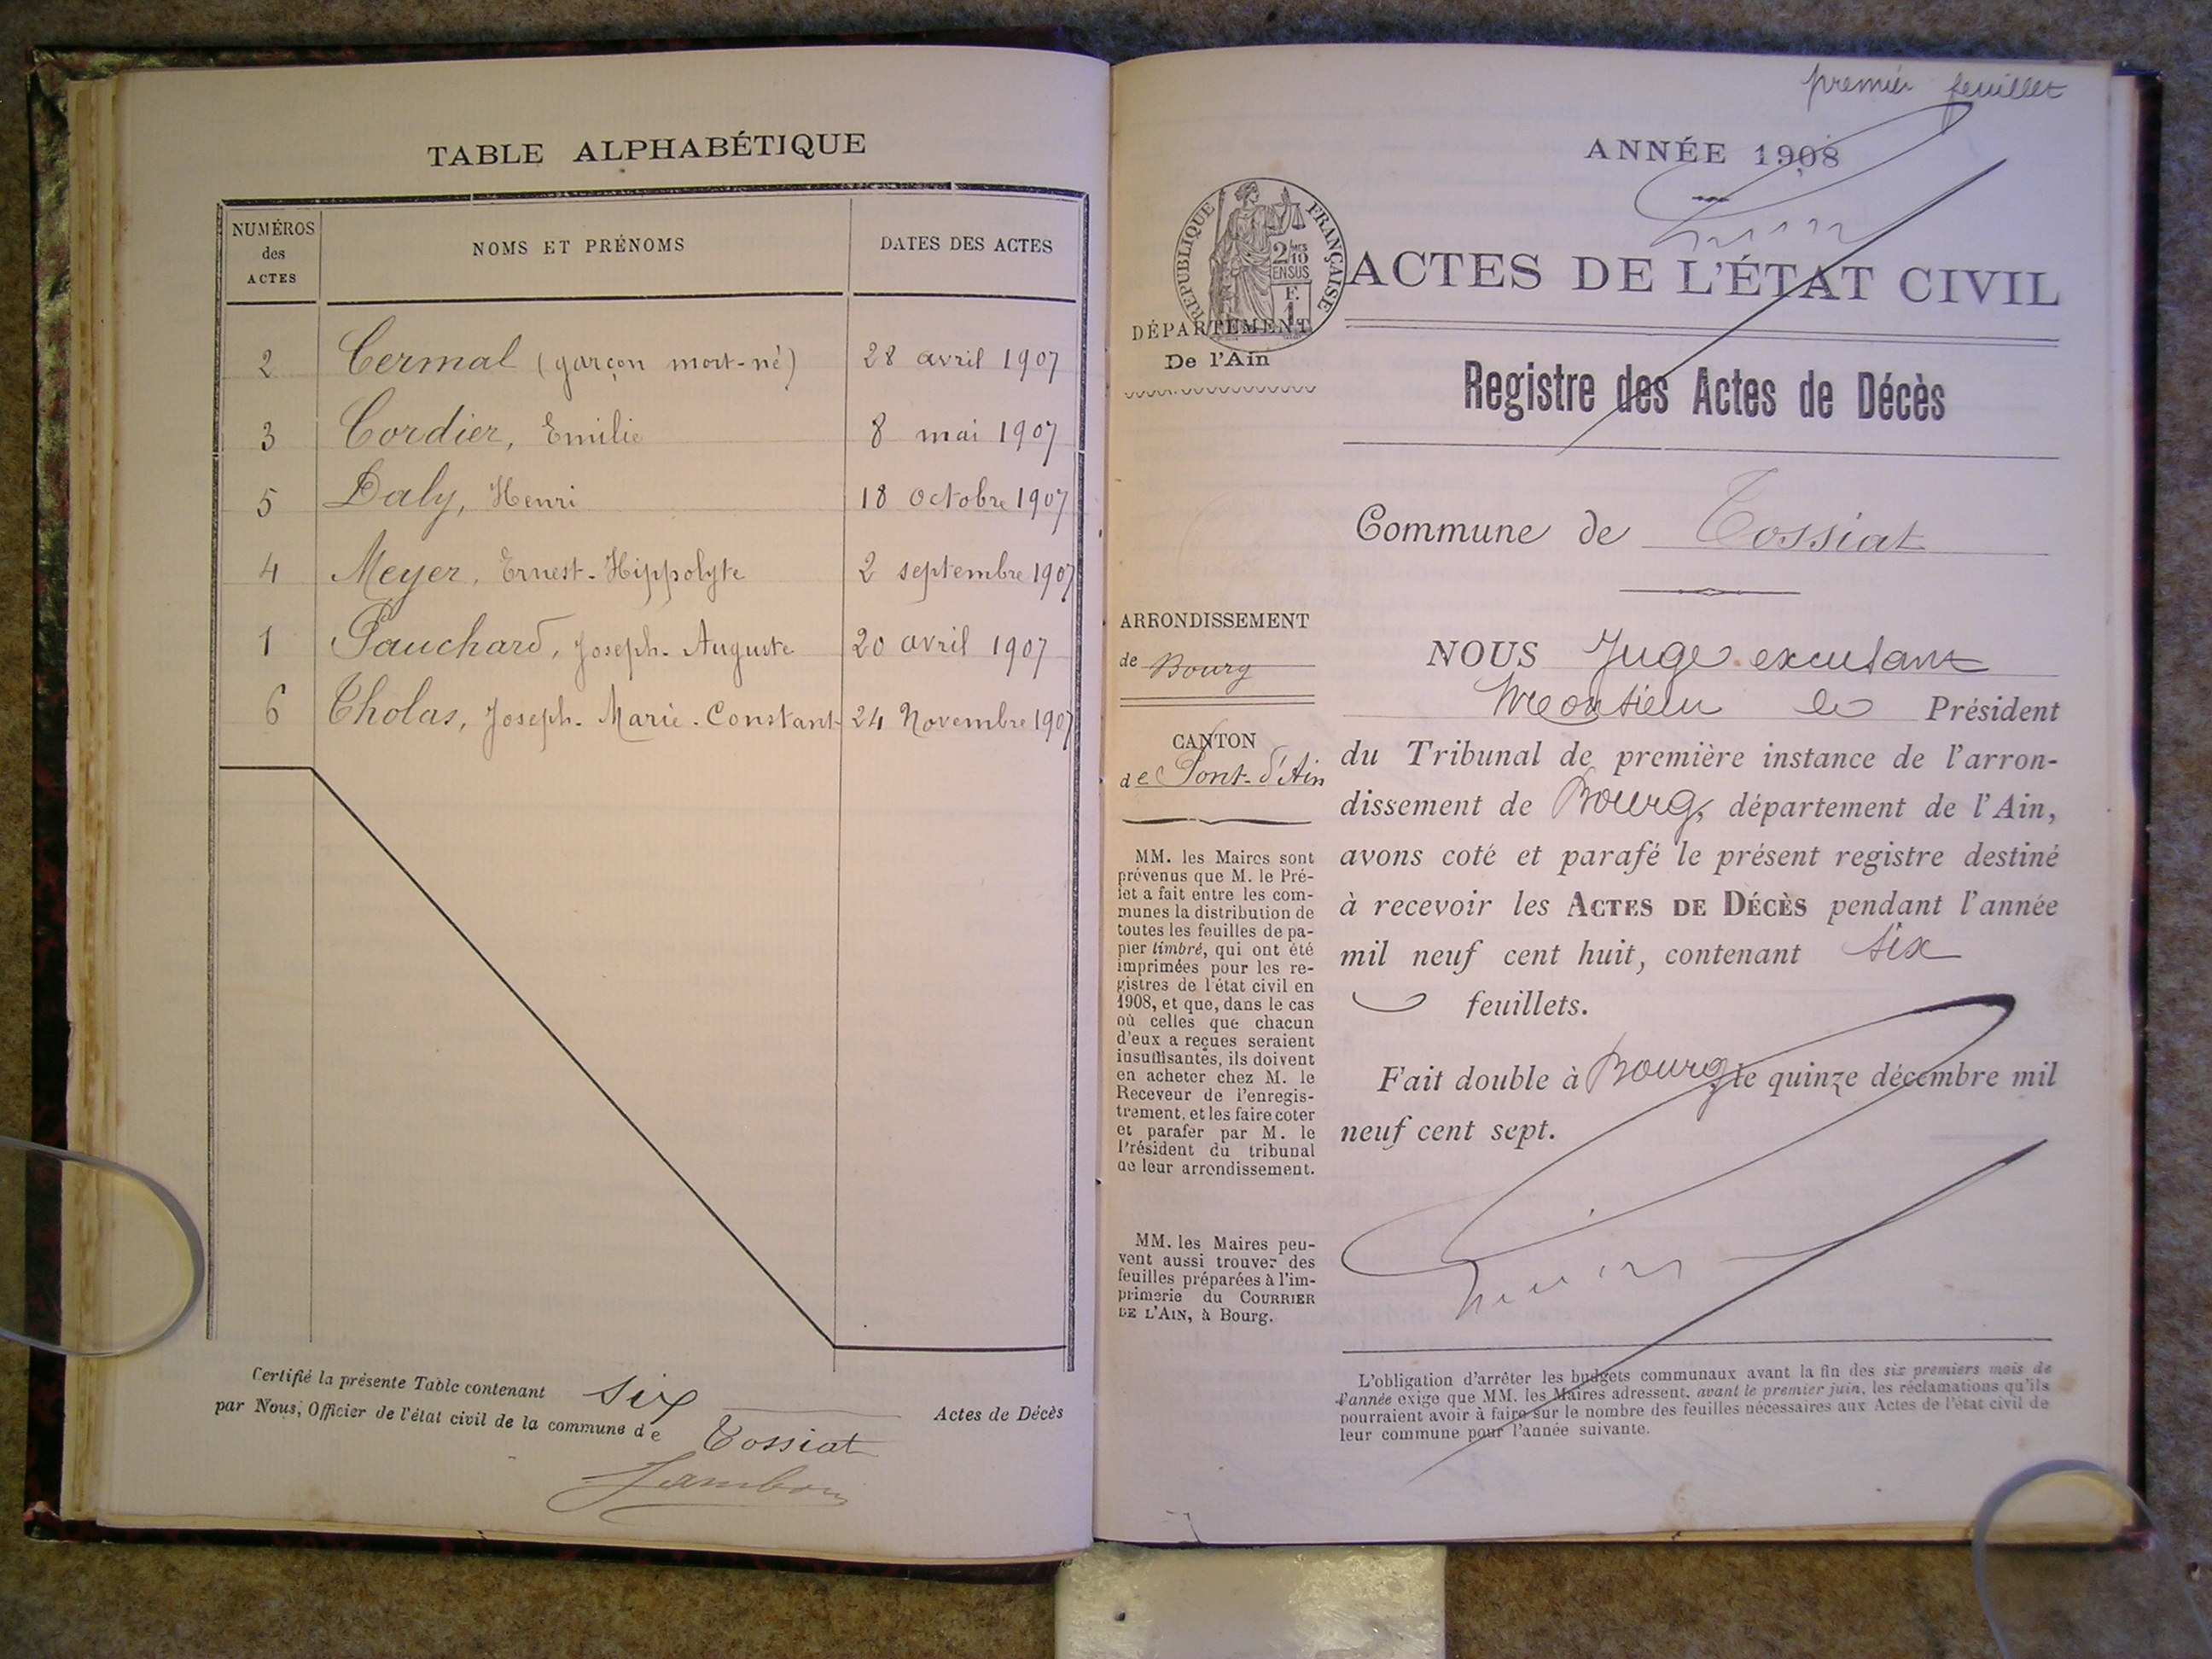 TABLE ALPHABÉTIQUE
NUMÉROS
des
ACTES
NOMS ET PRÉNOMS
DATES DES ACTES
2 Cermal (garçon mort-né) 28 avril 1907
3 Cordier, Emilie 8 mai 1907
5 Daly, Henri 18 octobre 1907
4 Meyer, Ernest-Hippolyte 2 septembre 1907
1 Pauchard, Joseph-Auguste 20 avril 1907
6 Tholas, Joseph-Marie-Constant 24 Novembre 1907
Certifié la présente Table contenant six Actes de Décès
par Nous, Officier de l'état civil de la commune de Tossiat
premier feuillet
ANNÉE 1908
RÉPUBLIQUE FRANÇAISE
2/10
EN SUS
F.
1
ACTES DE L'ÉTAT CIVIL
DÉPARTEMENT
De l'Ain
Registre des Actes de Décès
Commune de Tossiat
ARRONDISSEMENT
de Bourg
CANTON
de Pont-d'Ain
MM. les Maires sont
prévenus que M. le Pré-
fet a fait entre les com-
munes la distribution de
toutes les feuilles de pa-
pier timbré, qui ont été
imprimées pour les re-
gistres de l'état civil en
1908, et que, dans le cas
où celles que chacun
d'eux a reçues seraient
insuffisantes, ils doivent
en acheter chez M. le
Receveur de l'enregis-
trement, et les faire coter
et parafer par M. le
Président du tribunal
de leur arrondissement.
MM. les Maires peu-
vent aussi trouver des
feuilles préparées à l'im-
primerie du COURRIER
DE L'AIN, à Bourg.
NOUS Juge
le Président
du Tribunal de première instance de l'arron-
dissement de Bourg, département de l'Ain,
avons coté et parafé le présent registre destiné
à recevoir les ACTES DE DÉCÈS pendant l'année
mil neuf cent huit, contenant six
feuillets.
Fait double à Bourg, le quinze décembre mil
neuf cent sept.
L'obligation d'arrêter les budgets communaux avant la fin des six premiers mois de
l'année exige que MM. les Maires adressent, avant le premier juin, les réclamations qu'ils
pourraient avoir à faire sur le nombre des feuilles nécessaires aux Actes de l'état civil de
leur commune pour l'année suivante.